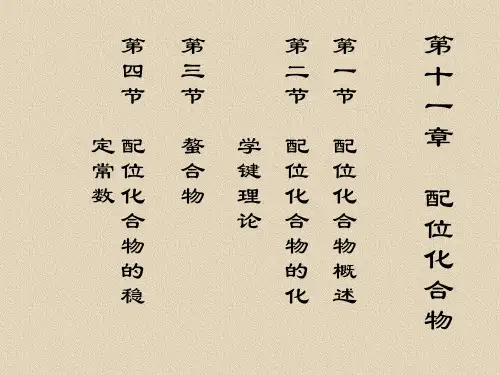 第十一章 配位化合物
第一节 配位化合物概述
第二节 配位化合物的化
学键理论
第三节 螯合物
第四节 配位化合物的稳
定常数